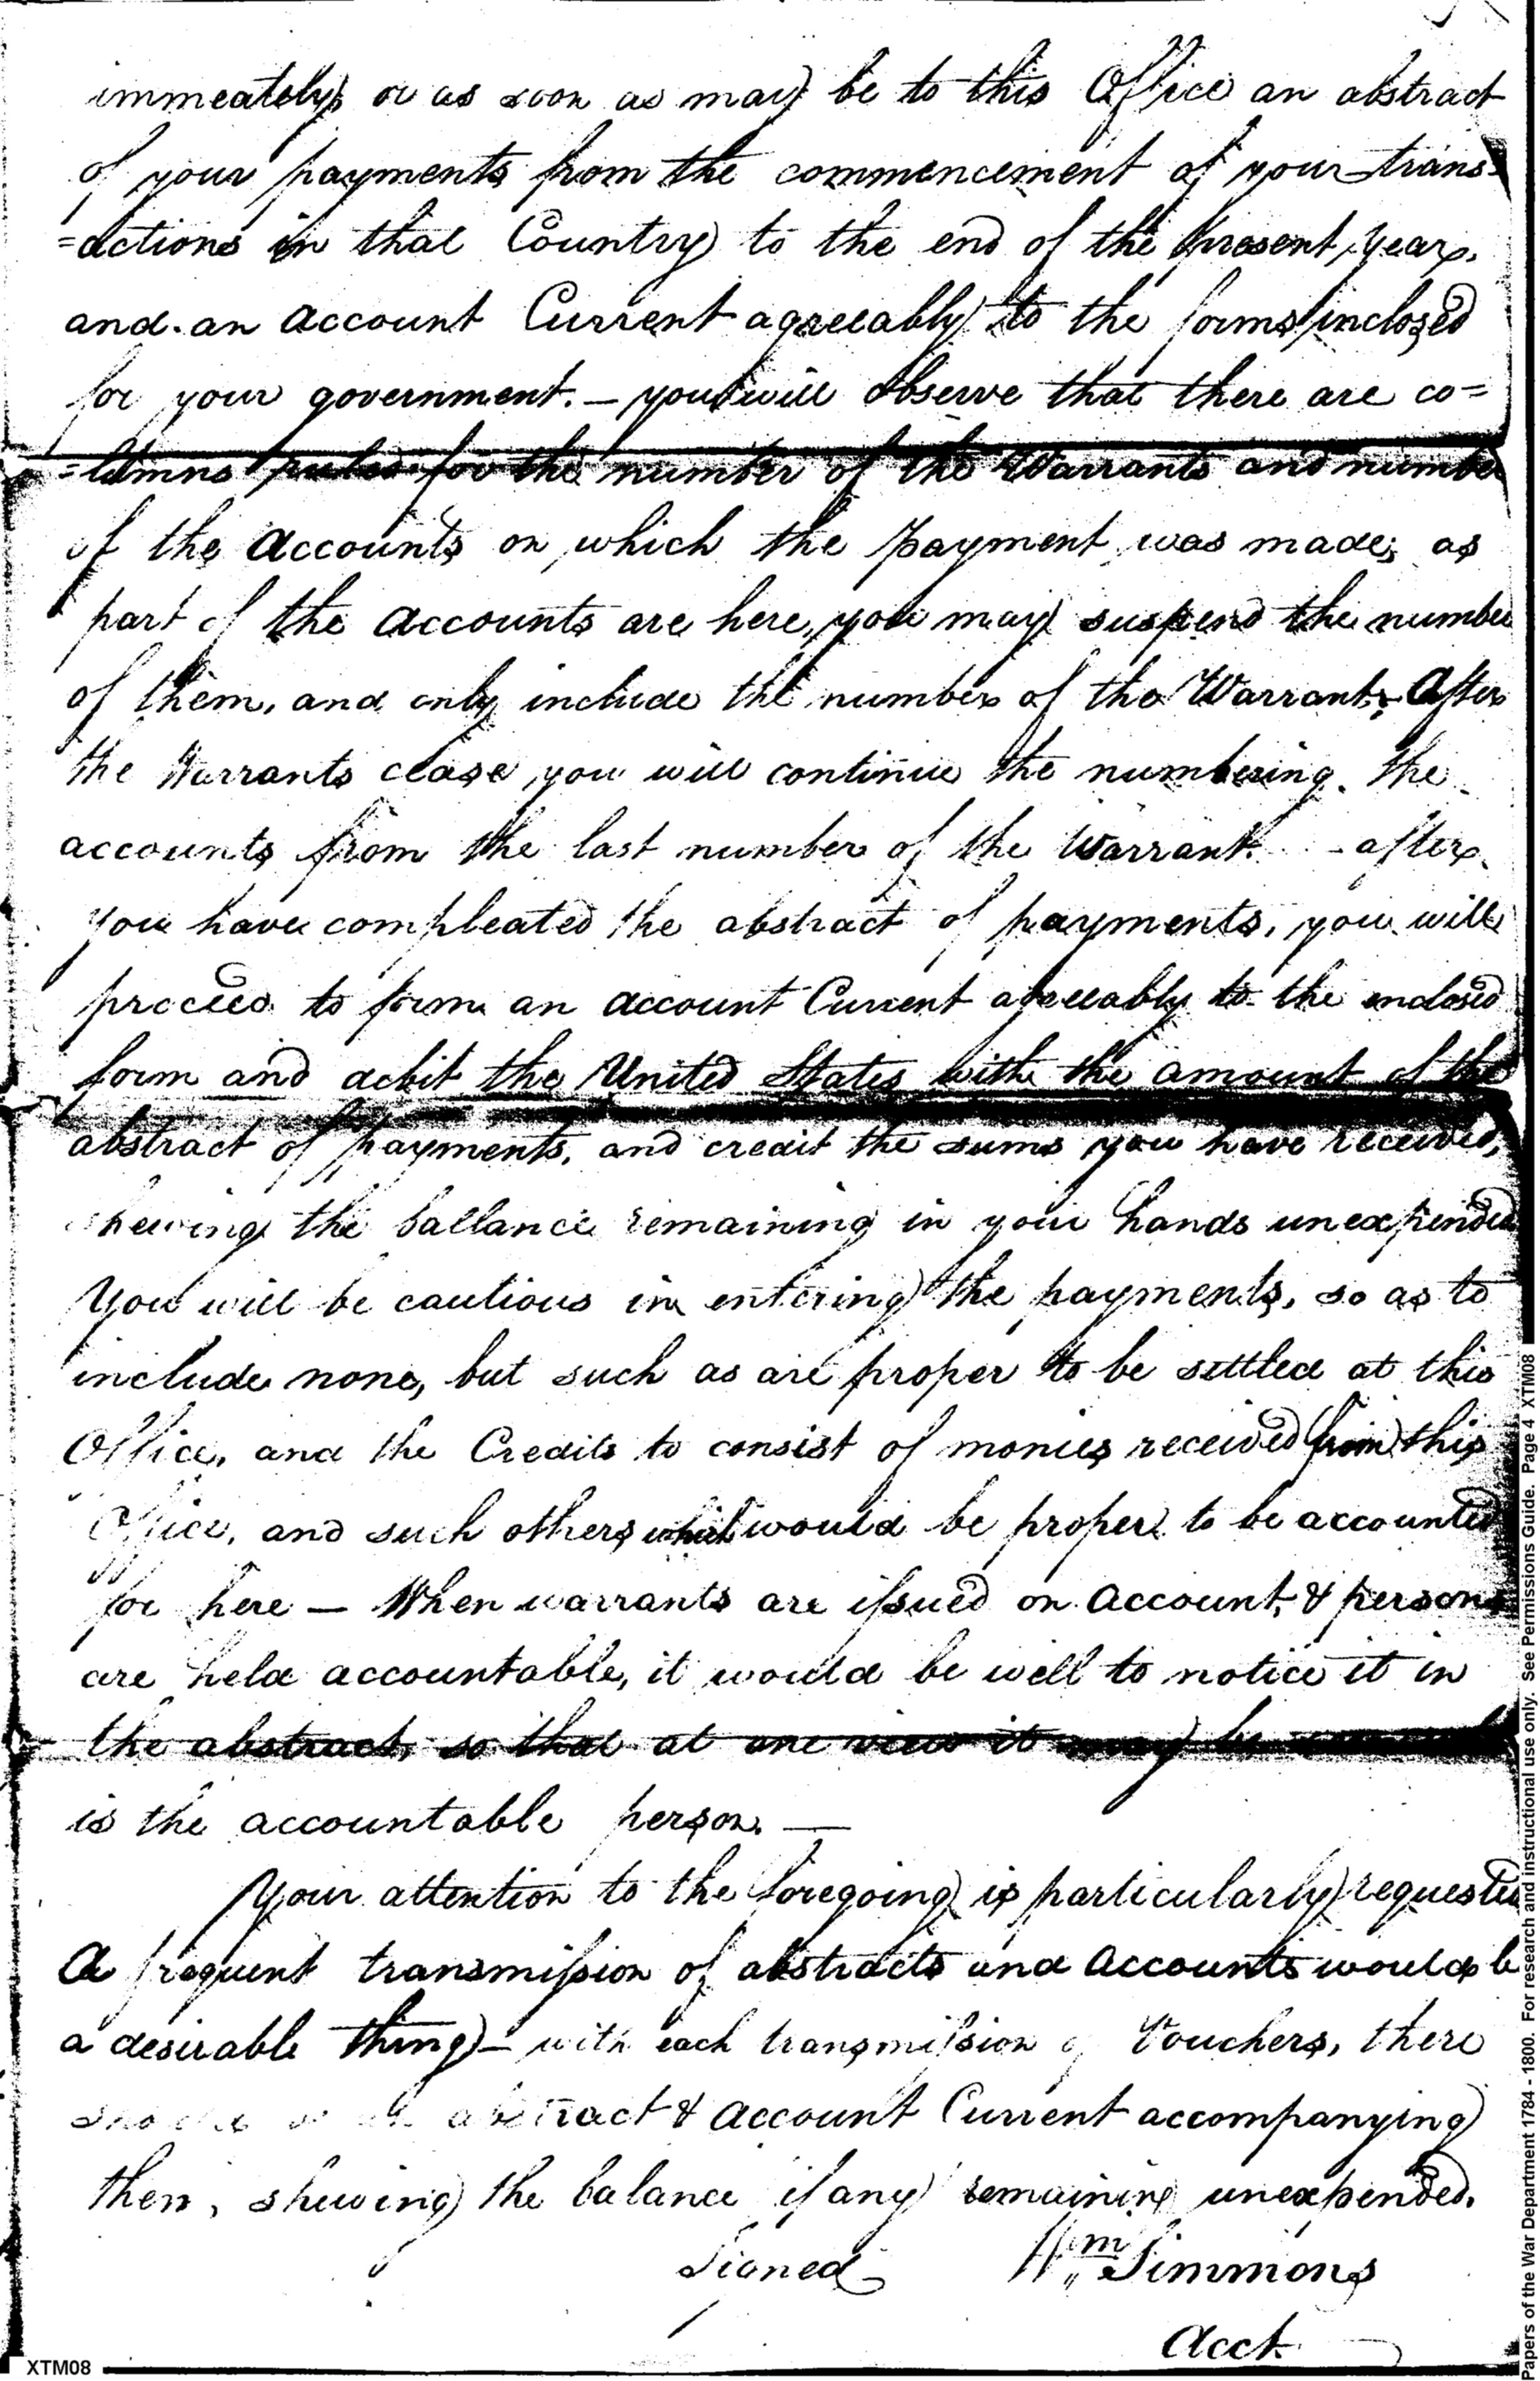 immeately or as soon as may be to this Office an abstract
of your payments from the commencement of your trans=
=actions in that Country to the end of the present year.
and an account Current agreeably to the forms inclosed
for your government. — you will observe that there are co=
=lumns ruled for the number of the Warrants and number
of the accounts on which the payment was made; as
part of the accounts are here, you may suspend the number
of them, and only include the number of the Warrant. After
the Warrants close, you will continue the numbering the
accounts from the last number of the Warrant. - after
you have compleated the abstract of payments, you will
proceed to form an account Current agreeably to the enclosed
form and debit the United States with the amount of the
abstract of payments, and credit the sums you have received,
shewing the ballance remaining in your hands unexpended
You will be cautious in entering the payments, so as to
include none, but such as are proper to be settled at this
Office, and the Credits to consist of monies received from this
Office, and such others which would be proper to be accounted
for here — When warrants are issued on account, & persons
are held accountable, it would be well to notice it in
the abstract, so that at one view it may be
is the accountable person. —
Your attention to the foregoing is particularly requested
A frequent transmission of abstracts and accounts would b
a desirable thing — with each transmission of Vouchers, there
abstract & account Current accompanying
them, shewing the balance if any remaining unexpended.
Signed Wm Simmons
Acct.
XTM08
Papers of the War Department 1784 - 1800. For research and instructional use only. See Permissions Guide. Page 4 XTM08